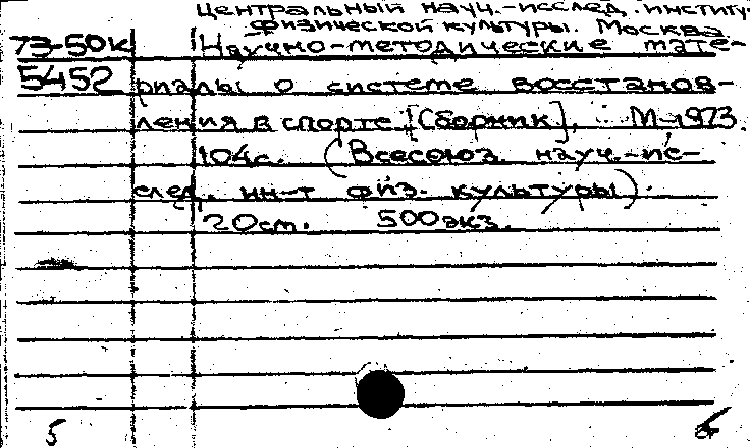 Центральный науч.-исслед. институт
физической культуры. Москва.
73-50к Научно-методические мате-
5452 риалы о системе восстанов-
ления в спорте. [Сборник], М., 1973.
104с. (Всесоюз. науч.-ис-
след. ин-т физ. культуры).
20см. 500экз.
5 б